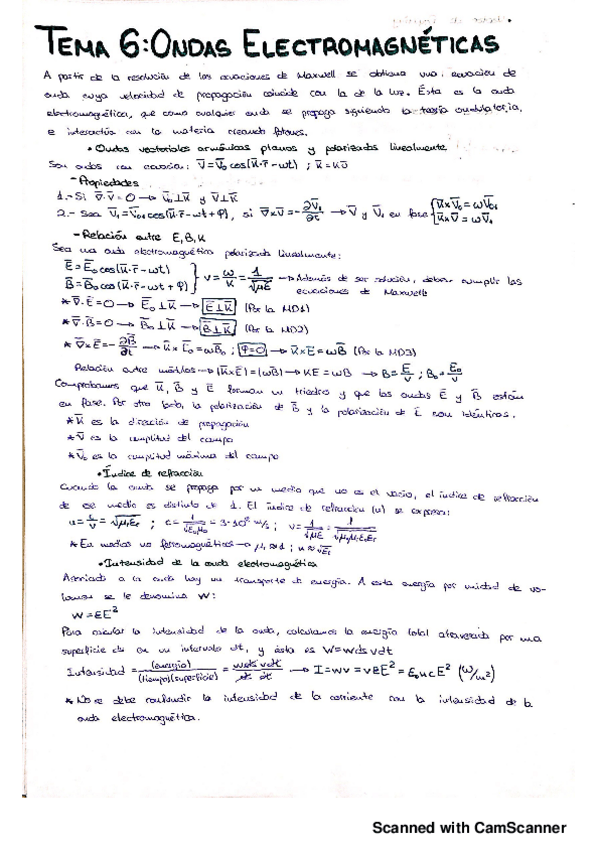 TEMA 6: ONDAS ELECTROMAGNÉTICAS
A partir de la resolución de las ecuaciones de Maxwell se obtiene una ecuación de
onda cuya velocidad de propagación coincide con la de la luz. Ésta es la onda
electromagnética, que como cualquier onda se propaga siguiendo la teoría ondulatoria,
e interactúa con la materia creando fotones.
• Ondas vectoriales armónicas planas y polarizadas linealmente
Son ondas con ecuación: V̄ = V̄₀ cos(k̄·r̄ - wt) ; k̄ = kū
- Propiedades
1.- Si ∇̄·V̄ = 0 → V̄₀ ⊥ k̄ y V̄ ⊥ k̄
2.- Sea V̄₁ = V̄₀₁ cos(k̄·r̄ - wt + φ), si ∇̄×V̄ = -∂V̄₁/∂t → V̄ y V̄₁ en fase { k̄×V̄₀ = wV̄₀₁
k̄×V̄ = wV̄₁
- Relación entre E, B, K
Sea una onda electromagnética polarizada linealmente:
Ē = Ē₀ cos(k̄·r̄ - wt)
B̄ = B̄₀ cos(k̄·r̄ - wt + φ) } v = w/k = 1/√με → Además de ser solución, deben cumplir las
ecuaciones de Maxwell
* ∇̄·Ē = 0 → Ē₀ ⊥ k̄ → Ē ⊥ k̄ (Por la MD1)
* ∇̄·B̄ = 0 → B̄₀ ⊥ k̄ → B̄ ⊥ k̄ (Por la MD2)
* ∇̄×Ē = -∂B̄/∂t → k̄×Ē₀ = wB̄₀ ; φ=0 → k̄×Ē = wB̄ (Por la MD3)
Relación entre módulos → |k̄×Ē| = |wB̄| → KE = wB → B = E/v ; B₀ = E₀/v
Comprobamos que k̄, B̄ y Ē forman un triedro y que las ondas Ē y B̄ están
en fase. Por otro lado, la polarización de B̄ y la polarización de Ē son idénticas.
* k̄ es la dirección de propagación
* V̄ es la amplitud del campo
* V̄₀ es la amplitud máxima del campo
• Índice de refracción
Cuando la onda se propaga por un medio que no es el vacío, el índice de refracción
de ese medio es distinto de 1. El índice de refracción (n) se expresa:
n = c/v = √μᵣεᵣ ; c = 1/√ε₀μ₀ = 3·10⁸ m/s ; v = 1/√με = 1/√μ₀μᵣε₀εᵣ
* En medios no ferromagnéticos → μᵣ ≈ 1 ; n ≈ √εᵣ
• Intensidad de la onda electromagnética
Asociado a la onda hay un transporte de energía. A esta energía por unidad de vo-
lumen se le denomina W:
W = εE²
Para calcular la intensidad de la onda, calculamos la energía total atravesada por una
superficie ds en un intervalo dt, y ésta es W = Wds vdt
Intensidad = (energía)/(tiempo)(superficie) = wds vdt/ds dt → I = wv = vεE² = ε₀ncE² (W/m²)
* No se debe confundir la intensidad de la corriente con la intensidad de la
onda electromagnética.
Scanned with CamScanner